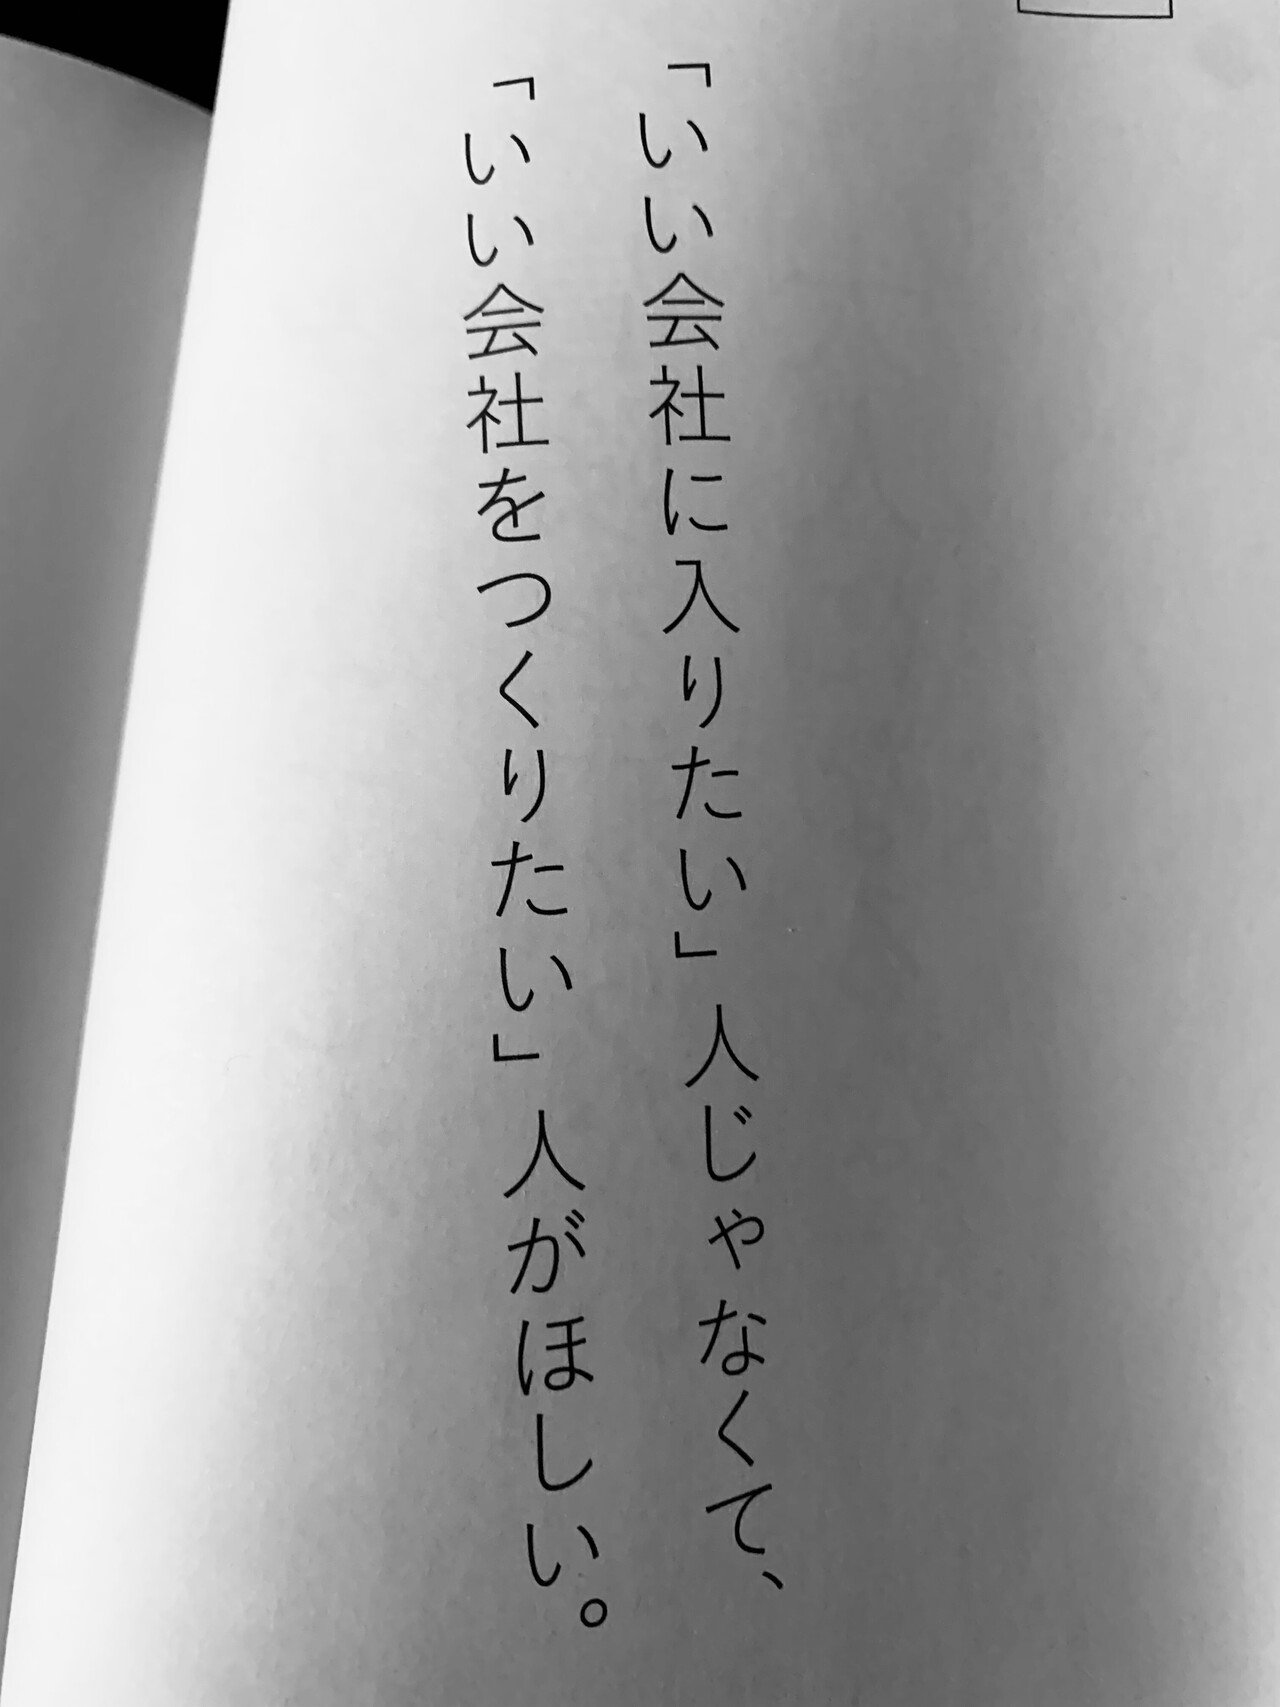 「いい会社に入りたい」人じゃなくて、
「いい会社をつくりたい」人がほしい。